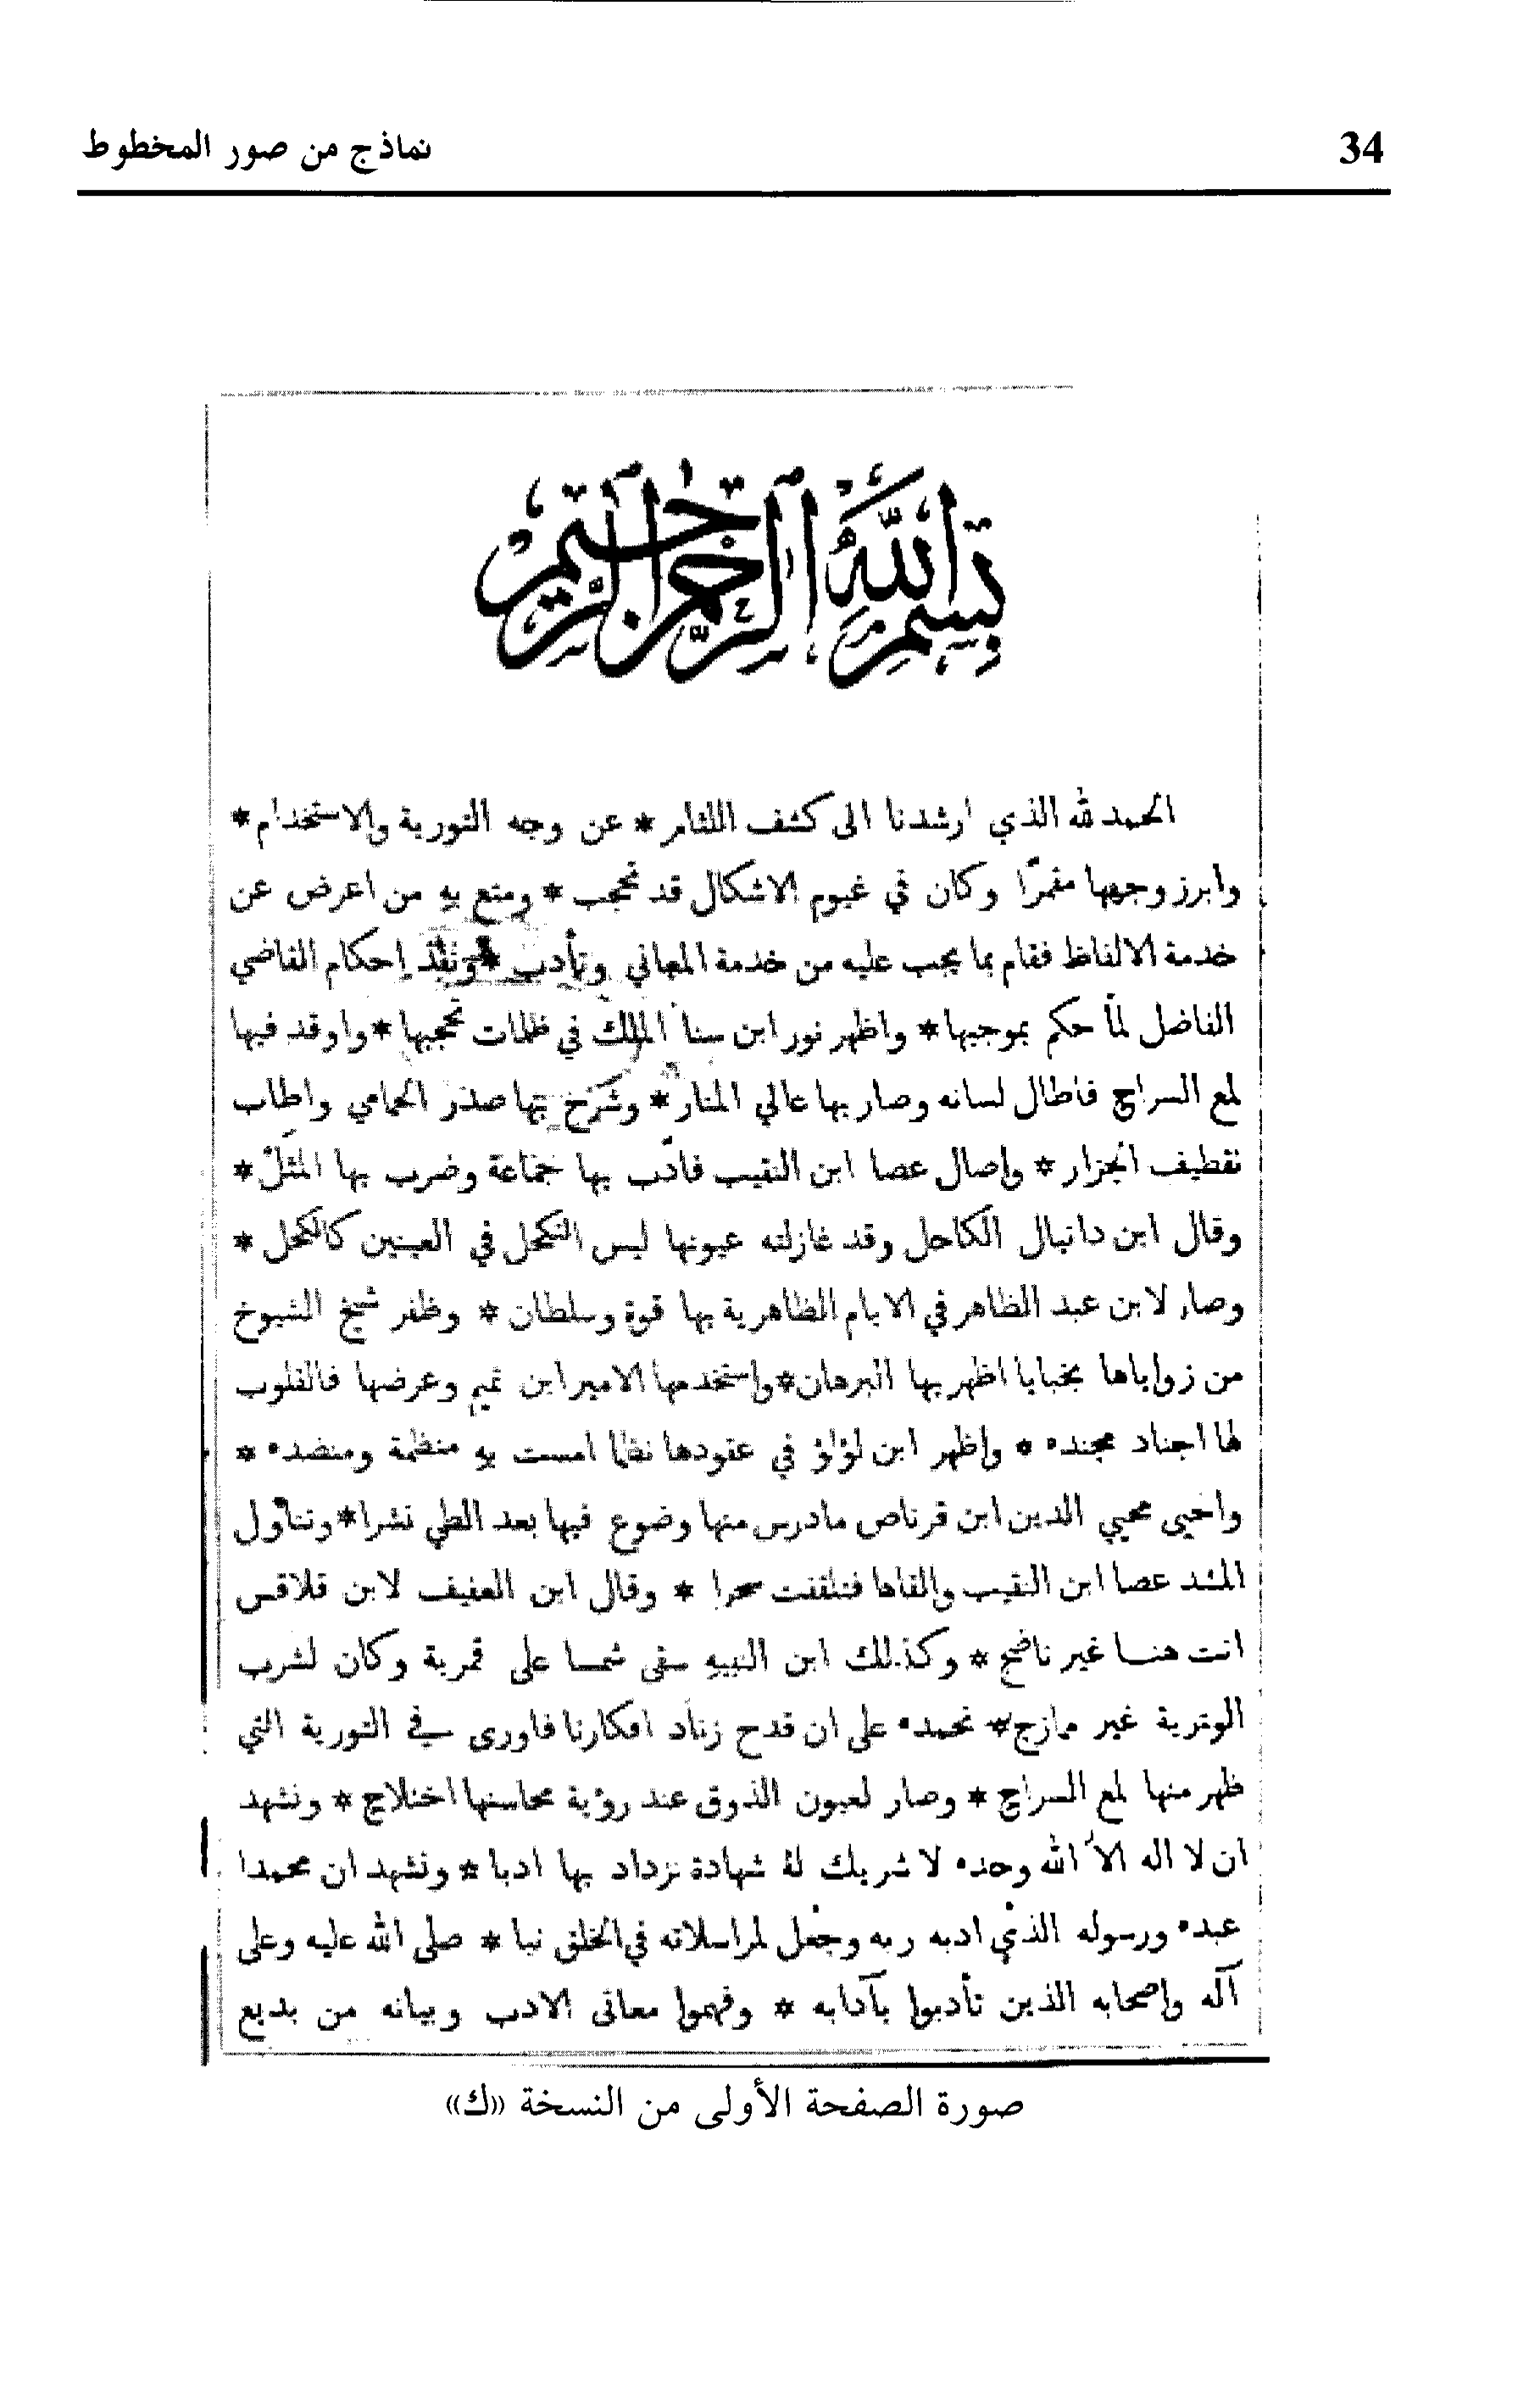 34
نماذج من صور المخطوط
بسم الله الرحمن الرحيم
الحمد لله الذي ارشدنا الى كشف اللثام * عن وجه التورية والاستخدام *
وابرز وجهها مقمرًا وكان في غيوم الاشكال قد تحجب * ومتع به من اعرض عن
خدمة الالفاظ فقام بما يجب عليه من خدمة المعاني وتأدب * ونفّذ إحكام القاضي
الفاضل لمّا حكم بموجبها * واظهر نور ابن سنا الملك في ظلمات تحجبها * واوقد فيها
لمع السراج فاطال لسانه وصار بها عالي المنار * وشرح بها صدر الحمامي واطاب
تقطيف الجزار * واصال عصا ابن النقيب فادّب بها جماعة وضرب بها المثل *
وقال ابن دانيال الكاحل وقد غازلته عيونها ليس التكحل في العينين كالكحل *
وصار لابن عبد الظاهر في الايام الظاهرية بها قوة وسلطان * وظفر شيخ الشيوخ
من زواياها بخبايا اظهر بها البرهان * واستخدمها الامير ابن تميم وعرضها فالقلوب
لها اجناد مجنده * واظهر ابن لؤلؤ في عقودها نظما امست به منظمة ومنضده *
واحيى محيي الدين ابن قرناص مادرس منها وضوع فيها بعد الطي نشرا * وتناول
المشد عصا ابن النقيب والقاها فتلقفت سحرا * وقال ابن العفيف لابن قلاقس
انت هنا غير ناضج * وكذلك ابن النبيه سقى شمسا على قمرية وكان لشرب
الوترية غير مازج * نحمده على ان قدح زناد افكارنا فاورى في التورية التي
ظهر منها لمع السراج * وصار لعيون الذوق عند رؤية محاسنها اختلاج * ونشهد
ان لا اله الا الله وحده لا شريك له شهادة نزداد بها ادبا * ونشهد ان محمدا
عبده ورسوله الذي ادبه ربه وجعل لمراسلاته في الخلق نبا * صلى الله عليه وعلى
آله واصحابه الذين تأدبوا بآدابه * وفهموا معاني الادب وبيانه من بديع
صورة الصفحة الأولى من النسخة «ك»